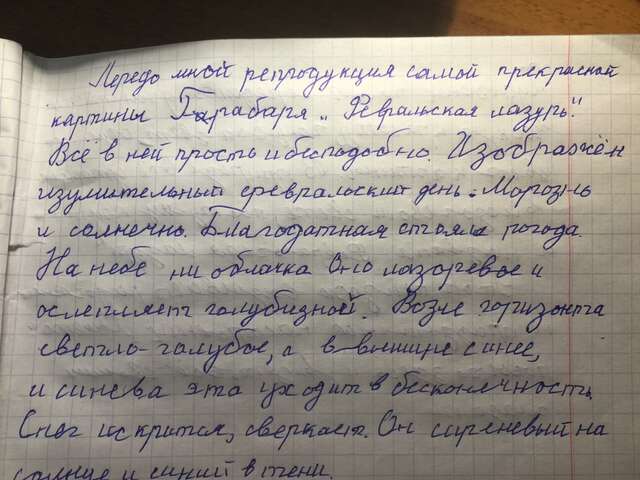 Передо мной репродукция самой прекрасной
картины Грабаря „Февральская лазурь."
Всё в ней просто и бесподобно. Изображён
изумительный февральский день: Морозно
и солнечно. Благодатная стояла погода
На небе ни облачка Оно лазоревое и
ослепляет голубизной. Возле горизонта
светло-голубое, а в вышине синее,
и синева эта уходит в бесконечность
Снег искрится, сверкает. Он сиреневый на
солнце и синий в тени.